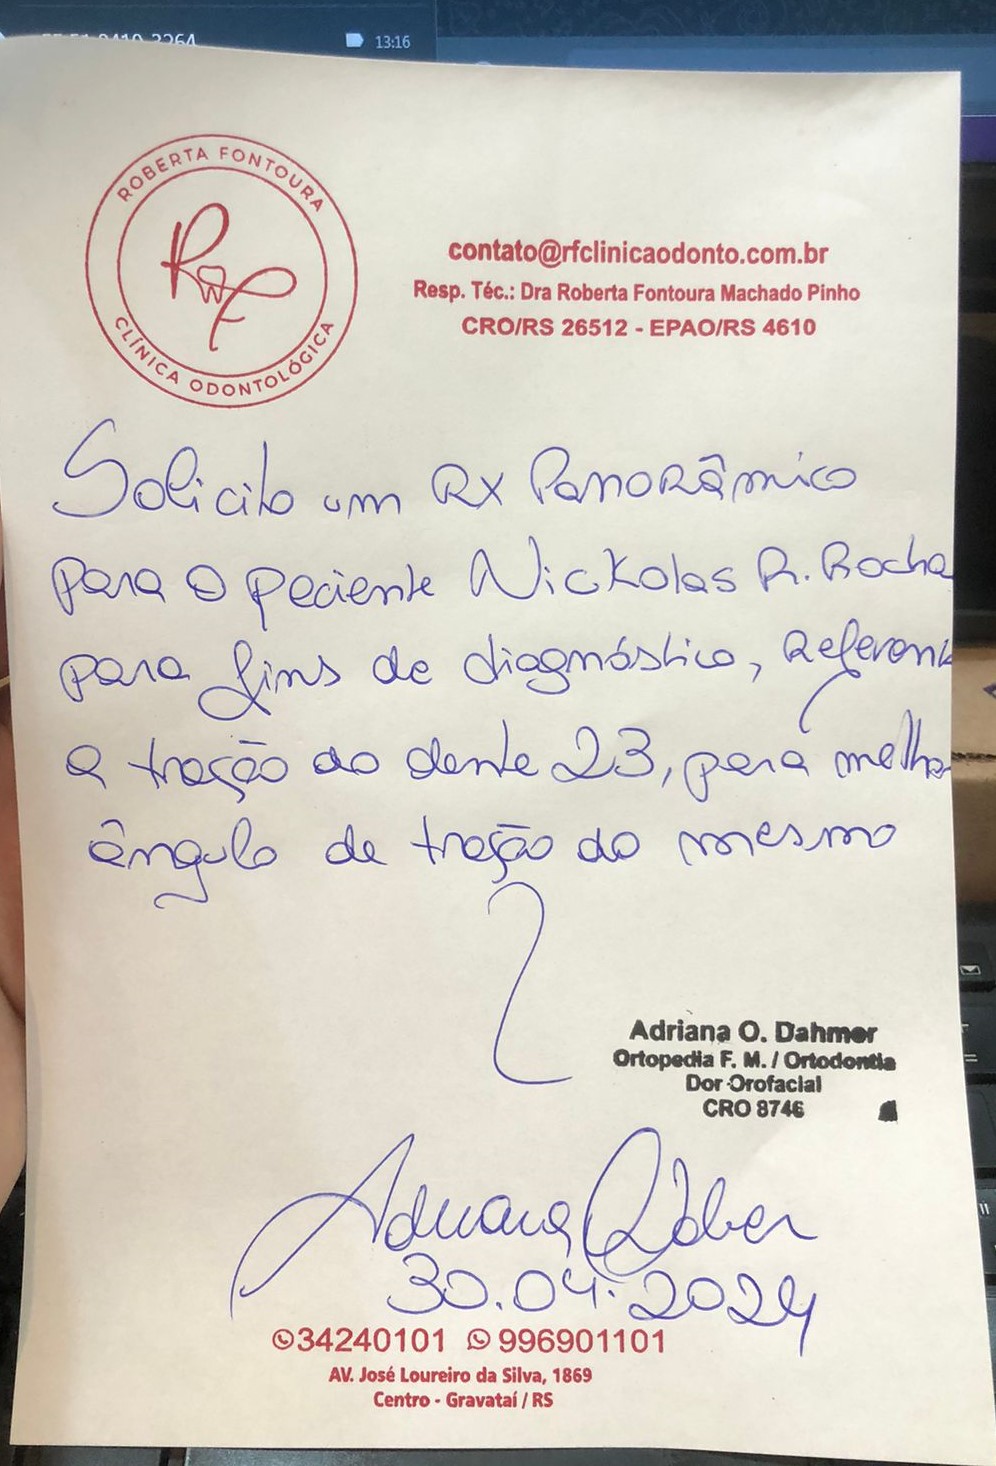 13:16
ROBERTA FONTOURA
CLÍNICA ODONTOLÓGICA
contato@rfclinicaodonto.com.br
Resp. Téc.: Dra Roberta Fontoura Machado Pinho
CRO/RS 26512 - EPAO/RS 4610
Solicito um RX Panorâmico
para o paciente Nickolas R. Rocha
para fins de diagnóstico,
a tração do dente 23, para melhor
ângulo de tração do mesmo
Adriana O. Dahmer
Ortopedia F. M. / Ortodontia
Dor Orofacial
CRO 8746
Adriana
30.04.2024
34240101 996901101
AV. José Loureiro da Silva, 1869
Centro - Gravataí / RS